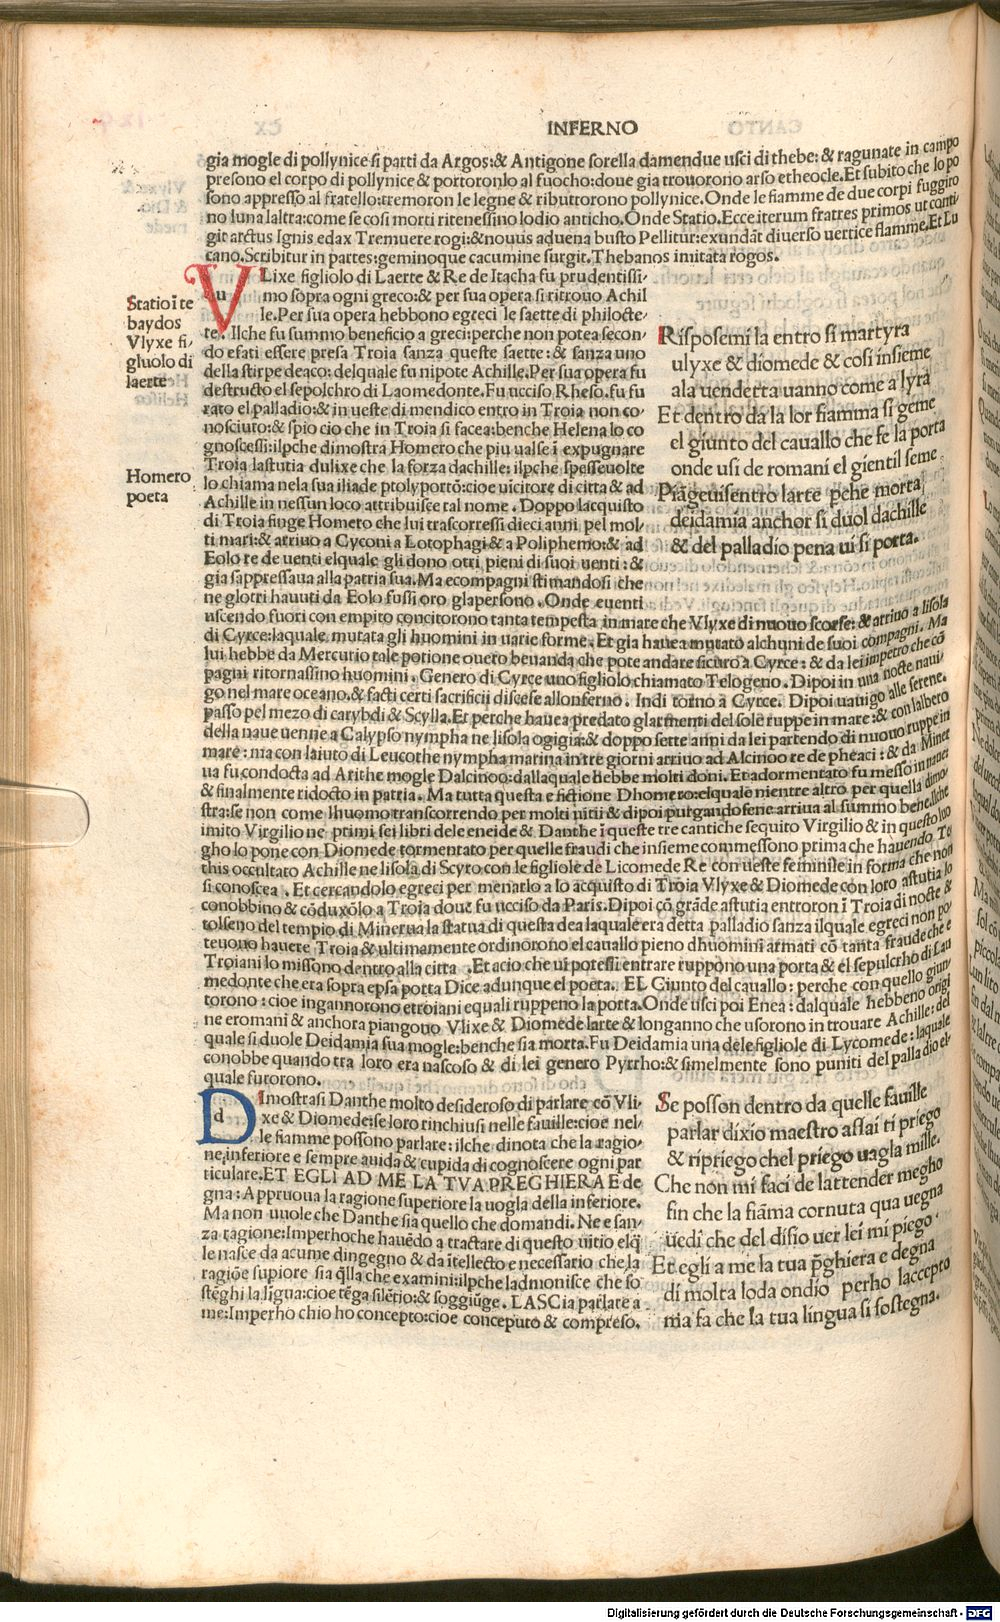 INFERNO
gia mogle di pollynice si parti da Argos:& Antigone sorella damendue usci di thebe: & ragunate in campo
presono el corpo di pollynice & portoronlo al fuocho:doue gia trouorono arso etheocle.Et subito che lo po
sono appresso al fratello:tremoron le legne & ributtorono pollynice.Onde le fiamme de due corpi fuggiro
no luna laltra:come se cosi morti ritenessino lodio anticho.Onde Statio.Ecce iterum fratres primos ut conti
git arctus Ignis edax Tremuere rogi:& nouus aduena busto Pellitur:exundāt diuerso uertice flammę.Et Lu
cano.Scribitur in partes:geminoque cacumine surgit.Thebanos imitata rogos.
Statio ī te
baydos
Vlyxe fi/
gluolo di
laerte
Homero
poeta
VLixe figliolo di Laerte & Re de Itacha fu prudentissi/
mo sopra ogni greco:& per sua opera si ritrouo Achil
le.Per sua opera hebbono egreci le saette di philocte/
te. Ilche fu summo beneficio a greci:perche non potea secon/
do efati essere presa Troia sanza queste saette: & sanza uno
della stirpe deaco: delquale fu nipote Achille.Per sua opera fu
destructo el sepolchro di Laomedonte.Fu ucciso Rheso.fu fu
rato el palladio:& in ueste di mendico entro in Troia non co/
nosciuto:& spio cio che in Troia si facea:benche Helena lo co
gnoscessi:ilpche dimostra Homero che piu ualse ī expugnare
Troia lastutia dulixe che la forza dachille: ilpche spesseuolte
lo chiama nela sua iliade ptolyportō:cioe uicitore di citta & ad
Achille in nessun loco attribuisce tal nome. Doppo lacquisto
di Troia finge Homero che lui trascorressi dieci anni pel mol/
ti mari:& arriuo a Cyconi a Lotophagi & a Poliphemo:& ad
Eolo re de uenti elquale gli dono otri pieni di suoi uenti: &
gia sappressaua alla patria sua.Ma ecompagni stimandosi che
ne glotri hauuti da Eolo fussi oro glapersono.Onde euenti
uscendo fuori con empito concitorono tanta tempesta in mare che Vlyxe di nuouo scorse: & arriuo a lisola
di Cyrce:laquale mutata gli huomini in uarie forme. Et gia hauea mutato alchuni de suoi compagni. Ma
lui hebbe da Mercurio tale potione ouero beuanda che pote andare sicuro a Cyrce: & da lei impetro che cō
pagni ritornassino huomini. Genero di Cyrce uno figliolo chiamato Telogeno.Dipoi in una nocte naui/
go nel mare oceano.& facti certi sacrificii discese allonferno. Indi torno a Cyrce. Dipoi nauigo alle serene.
passo pel mezo di carybdi & Scylla.Et perche hauea predato glarmenti del sole ruppe in mare:& con lalbero
della naue uenne a Calypso nympha ne lisola ogigia:& doppo sette anni da lei partendo di nuouo ruppe in
mare: ma con laiuto di Leucothe nympha marina in tre giorni arriuo ad Alcinoo re de pheaci: & da Miner
ua fu condocta ad Arithe mogle Dalcinoo:dallaquale hebbe molti doni. Et adormentato fu messo in naue:
& finalmente ridocto in patria. Ma tutta questa e fictione Dhomero:elquale nientre altro per quella dimo/
stra:se non come lhuomo transcorrendo per molti uitii & dipoi purgandosene arriua al summo bene.Ilche
imito Virgilio ne primi sei libri dele eneide & Danthe ī queste tre cantiche sequito Virgilio & in questo luo
gho lo pone con Diomede tormentato per quelle fraudi che insieme commessono prima che hauendo Te
this occultato Achille ne lisola di Scyro con le figliole de Licomede Re con ueste feminile in forma che non
si conoscea. Et cercandolo egreci per menarlo a lo acquisto di Troia Vlyxe & Diomede con loro astutia lo
conobbino & cōduxōlo a Troia doue fu ucciso da Paris.Dipoi cō grāde astutia entroron ī Troia di nocte &
tolseno del tempio di Minerua la statua di questa dea laquale era detta palladio sanza ilquale egreci non po
teuono hauere Troia & ultimamente ordinorono el cauallo pieno dhuomini armati cō tanta fraude che e
Troiani lo missono dentro alla citta .Et acio che ui potessi entrare ruppono una porta & el sepulcrho di Lau
medonte che era sopra epsa porta Dice adunque el poeta. EL Giunto del cauallo: perche con quello giun
torono: cioe ingannorono etroiani equali ruppeno la porta.Onde usci poi Enea: dalquale hebbeno origi
ne eromani & anchora piangouo Vlixe & Diomede larte & longanno che usorono in trouare Achille: del
quale si duole Deidamia sua mogle:benche sia morta.Fu Deidamia una dele figliole di Lycomede: laquale
conobbe quando tra loro era nascoso & di lei genero Pyrrho:& simelmente sono puniti del palladio el/
quale furorono.
Risposemi la entro si martyra
ulyxe & diomede & cosi insieme
ala uendetta uanno come a lyra
Et dentro da la lor fiamma si geme
el giunto del cauallo che fe la porta
onde usi de romani el gientil seme
Piāgeuisentro larte pche morta
deidamia anchor si duol dachille
& del palladio pena ui si porta.
DImostrasi Danthe molto desideroso di parlare cō Vli/
xe & Diomede:se loro rinchiusi nelle fauille:cioe nel/
le fiamme possono parlare: ilche dinota che la ragio/
ne inferiore e sempre auida & cupida di cognoscere ogni par
ticulare.ET EGLI AD ME LA TVA PREGHIERA E de
gna: Appruoua la ragione superiore la uogla della inferiore.
Ma non uuole che Danthe sia quello che domandi. Ne e san/
za ragione:Imperhoche hauēdo a tractare di questo uitio elq̄
le nasce da acume dingegno & da ītellecto e necessario che la
ragiōe supiore sia q̄lla che examini:ilpche ladmonisce che so
stēghi la līgua:cioe tēga silētio:& soggiūge. LASCia parlare a
me:Imperho chio ho concepto:cioe conceputo & compreso.
Se posson dentro da quelle fauille
parlar dixio maestro assai ti priego
& ripriego chel priego uagla mille.
Che non mi faci de lattender megho
fin che la fiāma cornuta qua uegna
uedi che del disio uer lei mi piego.
Et egli a me la tua p̄ghiera e degna
di molta loda ondio perho laccepto
ma fa che la tua lingua si sostegna.
Digitalisierung gefördert durch die Deutsche Forschungsgemeinschaft - DFG